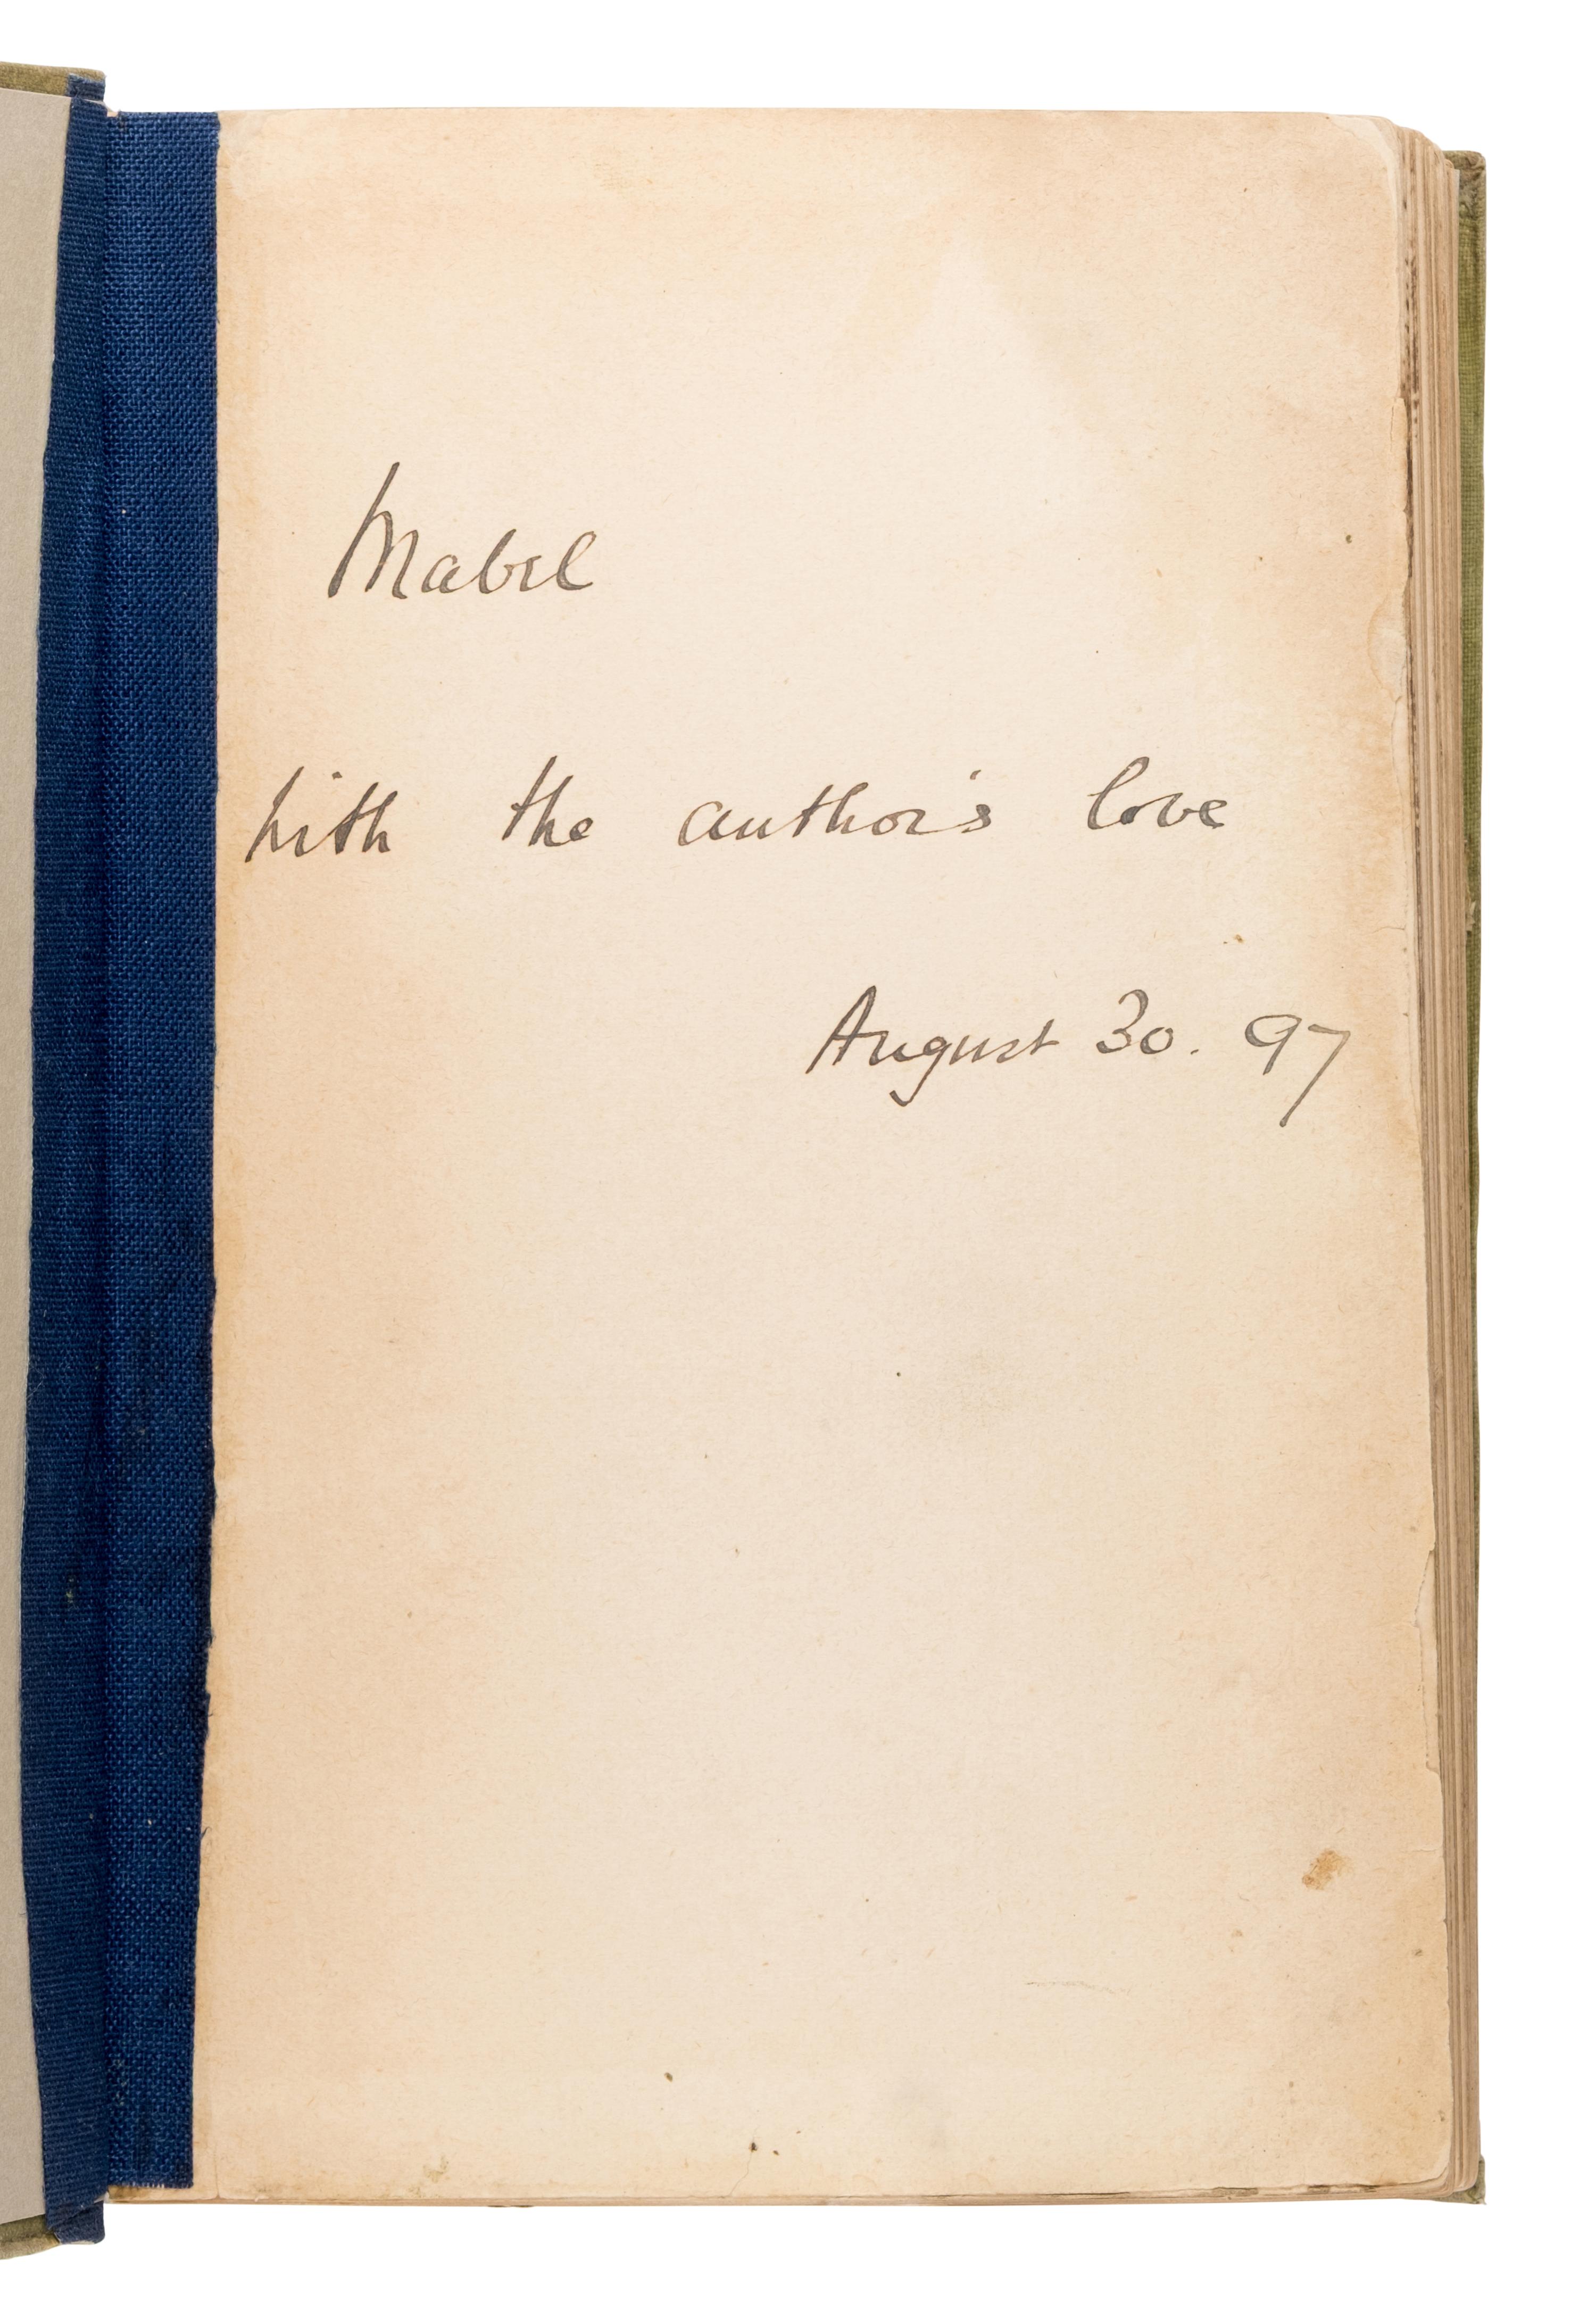 Mabel
With the author's love
August 30. 97